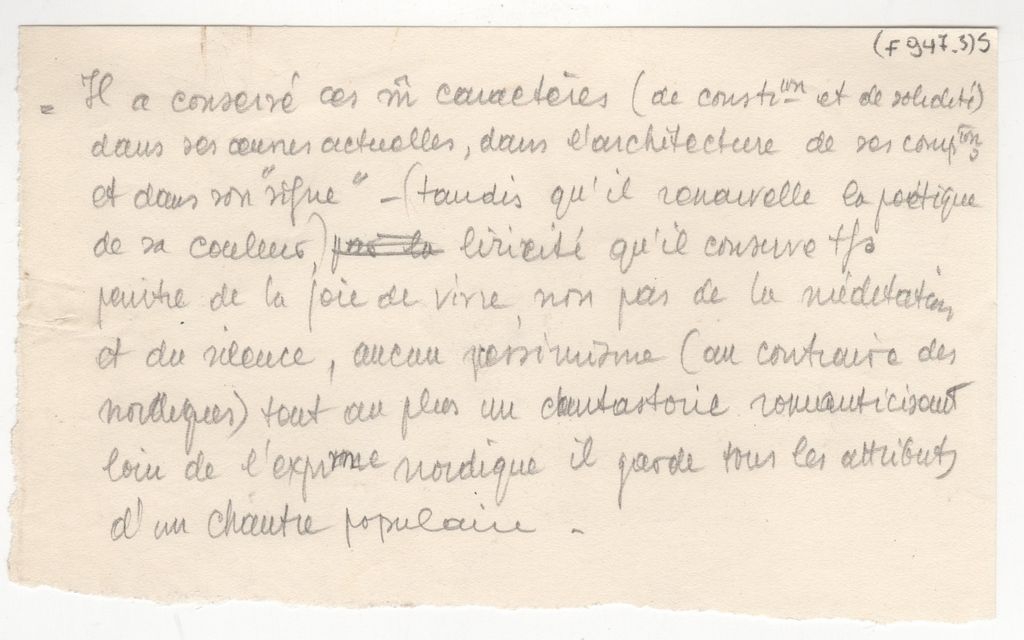 (F 947.3)S
= Il a conservé ces m̂ caractères (de consti^on et de solidité)
dans ses œuvres actuelles, dans l'architecture de ses comp^ions
et dans son "signe" – (tandis qu'il renouvelle la poétique
de sa couleur) liricité qu'il conserve
peintre de la joie de vivre, non pas de la méditation,
et du silence, aucun pessimisme (au contraire des
nordiques) tout au plus un romanticisant
loin de l'exp nordique il garde tous les attributs
d'un chantre populaire –